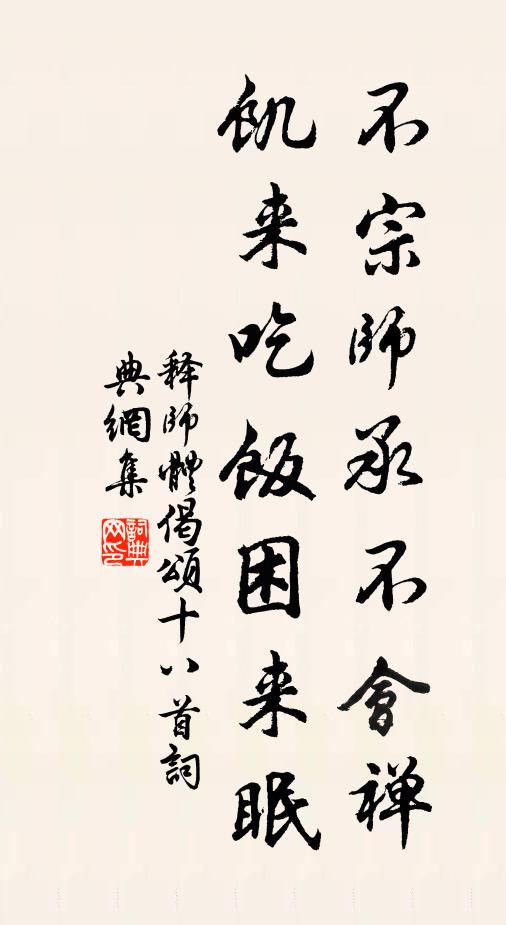 不宗師承不會禅
飢来吃飯困来眠
释師體偈頌十八首詞
典網集
詞典网印